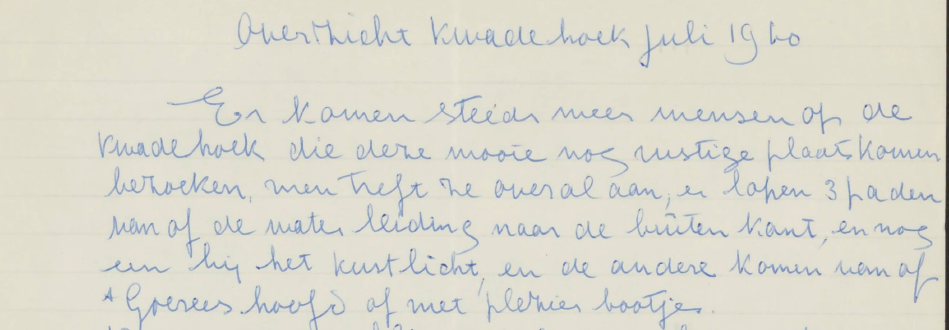 Overzicht Kwadehoek juli 1960
Er komen steeds meer mensen op de
Kwadehoek die deze mooie nog rustige plaats komen
bezoeken, men treft ze overal aan, er lopen 3 paden
van af de water leiding naar de buiten kant, en nog
een bij het kustlicht, en de andere komen van af
Goerees hoofd of met plezier bootjes.